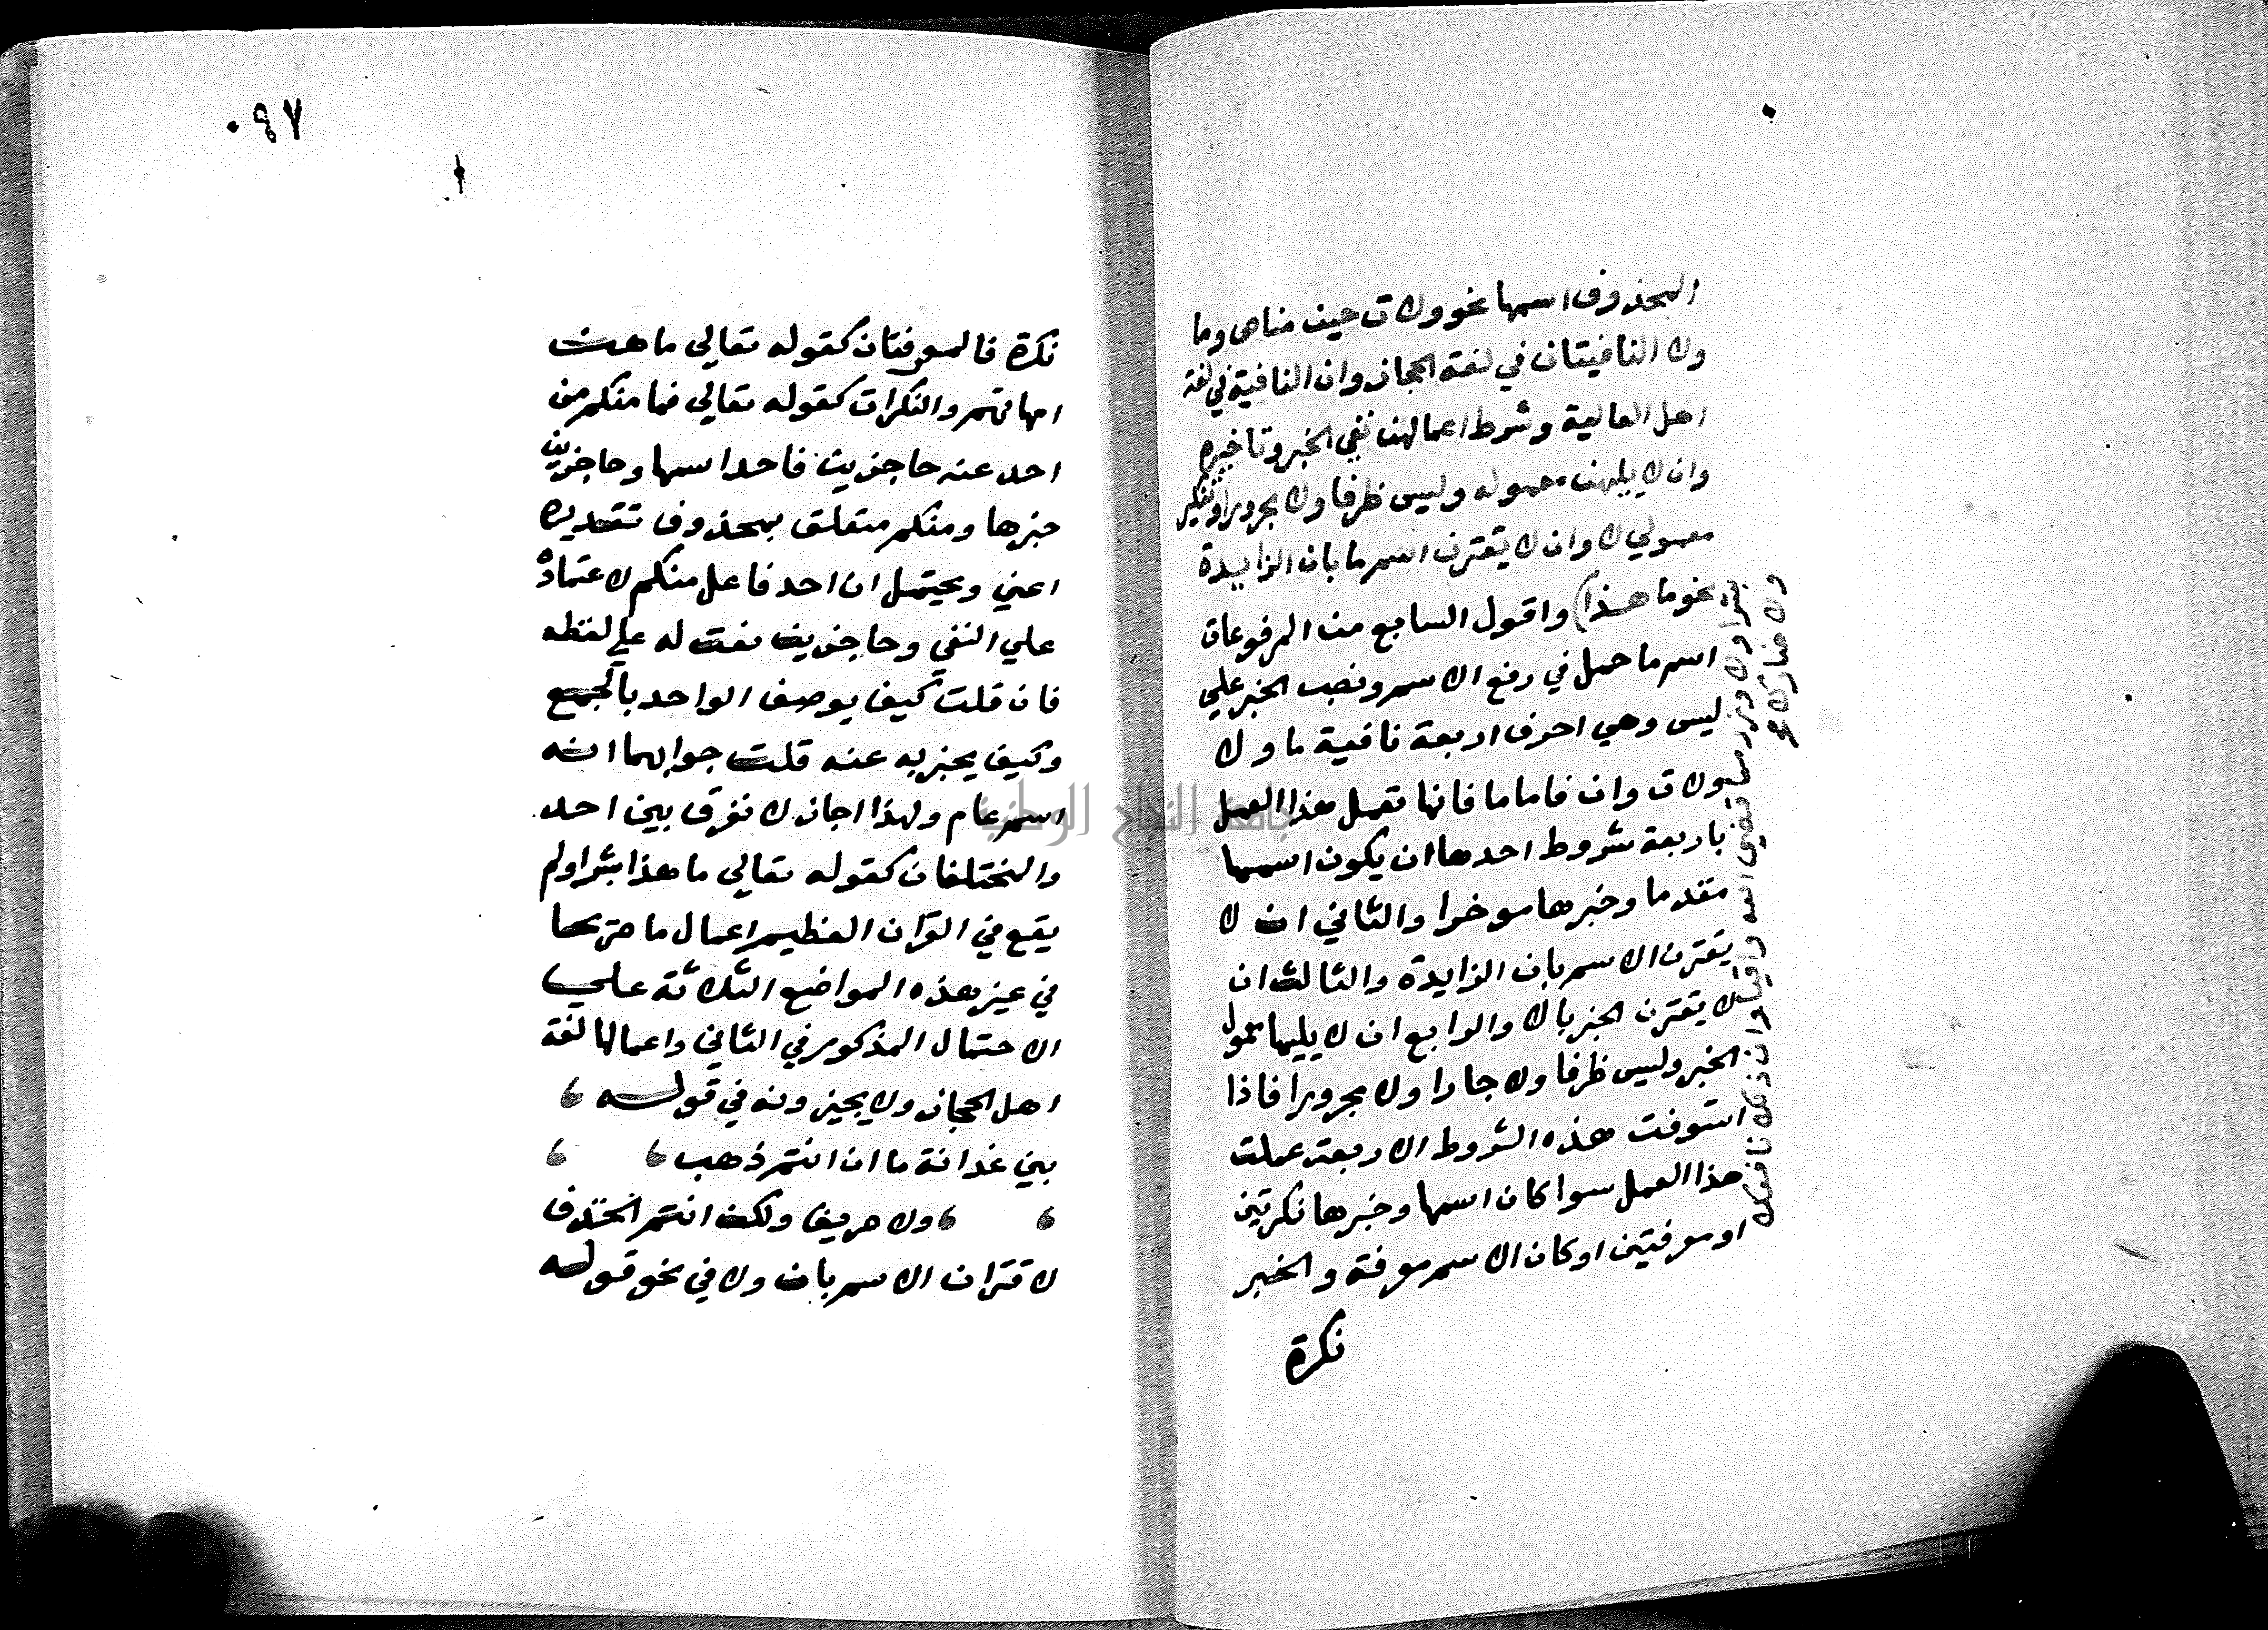 المحذوف اسمها نحو ولات حين مناص وما
ولا النافيتان في لغة الحجاز وان النافية في لغة
اهل العالية وشرط اعمالهن نفي الخبر وتاخيره
وان لا يليهن معموله وليس ظرفا ولا مجرورا وتنكير
معمولي لا وان لا يقترن اسم ما بان الزايدة
نحو ما هذا) واقول السابع من المرفوعات
اسم ما حمل في رفع الاسم ونصب الخبر علي
ليس وهي احرف اربعة نافية ما ولا
ولات وان فاما ما فانها تعمل هذا العمل
باربعة شروط احدها ان يكون اسمها
مقدما وخبرها موخرا والثاني ان لا
يقترن الاسم بان الزايدة والثالث ان
لا يقترن الخبر بالا والرابع ان لا يليها معمول
الخبر وليس ظرفا ولا جارا ولا مجرورا فاذا
استوفت هذه الشروط الاربعة عملت
هذا العمل سوا كان اسمها وخبرها نكرتين
او معرفتين او كان الاسم معرفة والخبر
نكرة
بشرا ولا وزر مما قضي الله واقيا وان ذلك نافعك
ولا ضارك
٠٩٧
نكرة فالمعرفتان كقوله تعالي ما هن
امهاتهم والنكرات كقوله تعالي فما منكم من
احد عنه حاجزين فاحد اسمها وحاجزين
خبرها ومنكم متعلق بمحذوف تقديره
اعني ويحتمل ان احد فاعل منكم لاعتماده
علي النفي وحاجزين نعت له علي لفظه
فان قلت كيف يوصف الواحد بالجمع
وكيف يخبر به عنه قلت جوابهما انه
اسم عام ولهذا اجاز لا نفرق بين احد
والمختلفان كقوله تعالي ما هذا بشرا ولم
يقع في القران العظيم اعمال ما صريحا
في غير هذه المواضع الثلاثة علي
الاحتمال المذكور في الثاني واعمالها لغة
اهل الحجاز ولا يجيزونه في قوله
بني غدانة ما ان انتم ذهب
ولا صريف ولكن انتم الخزف
لاقتران الاسم بان ولا في نحو قوله
جامعة النجاح الوطنية